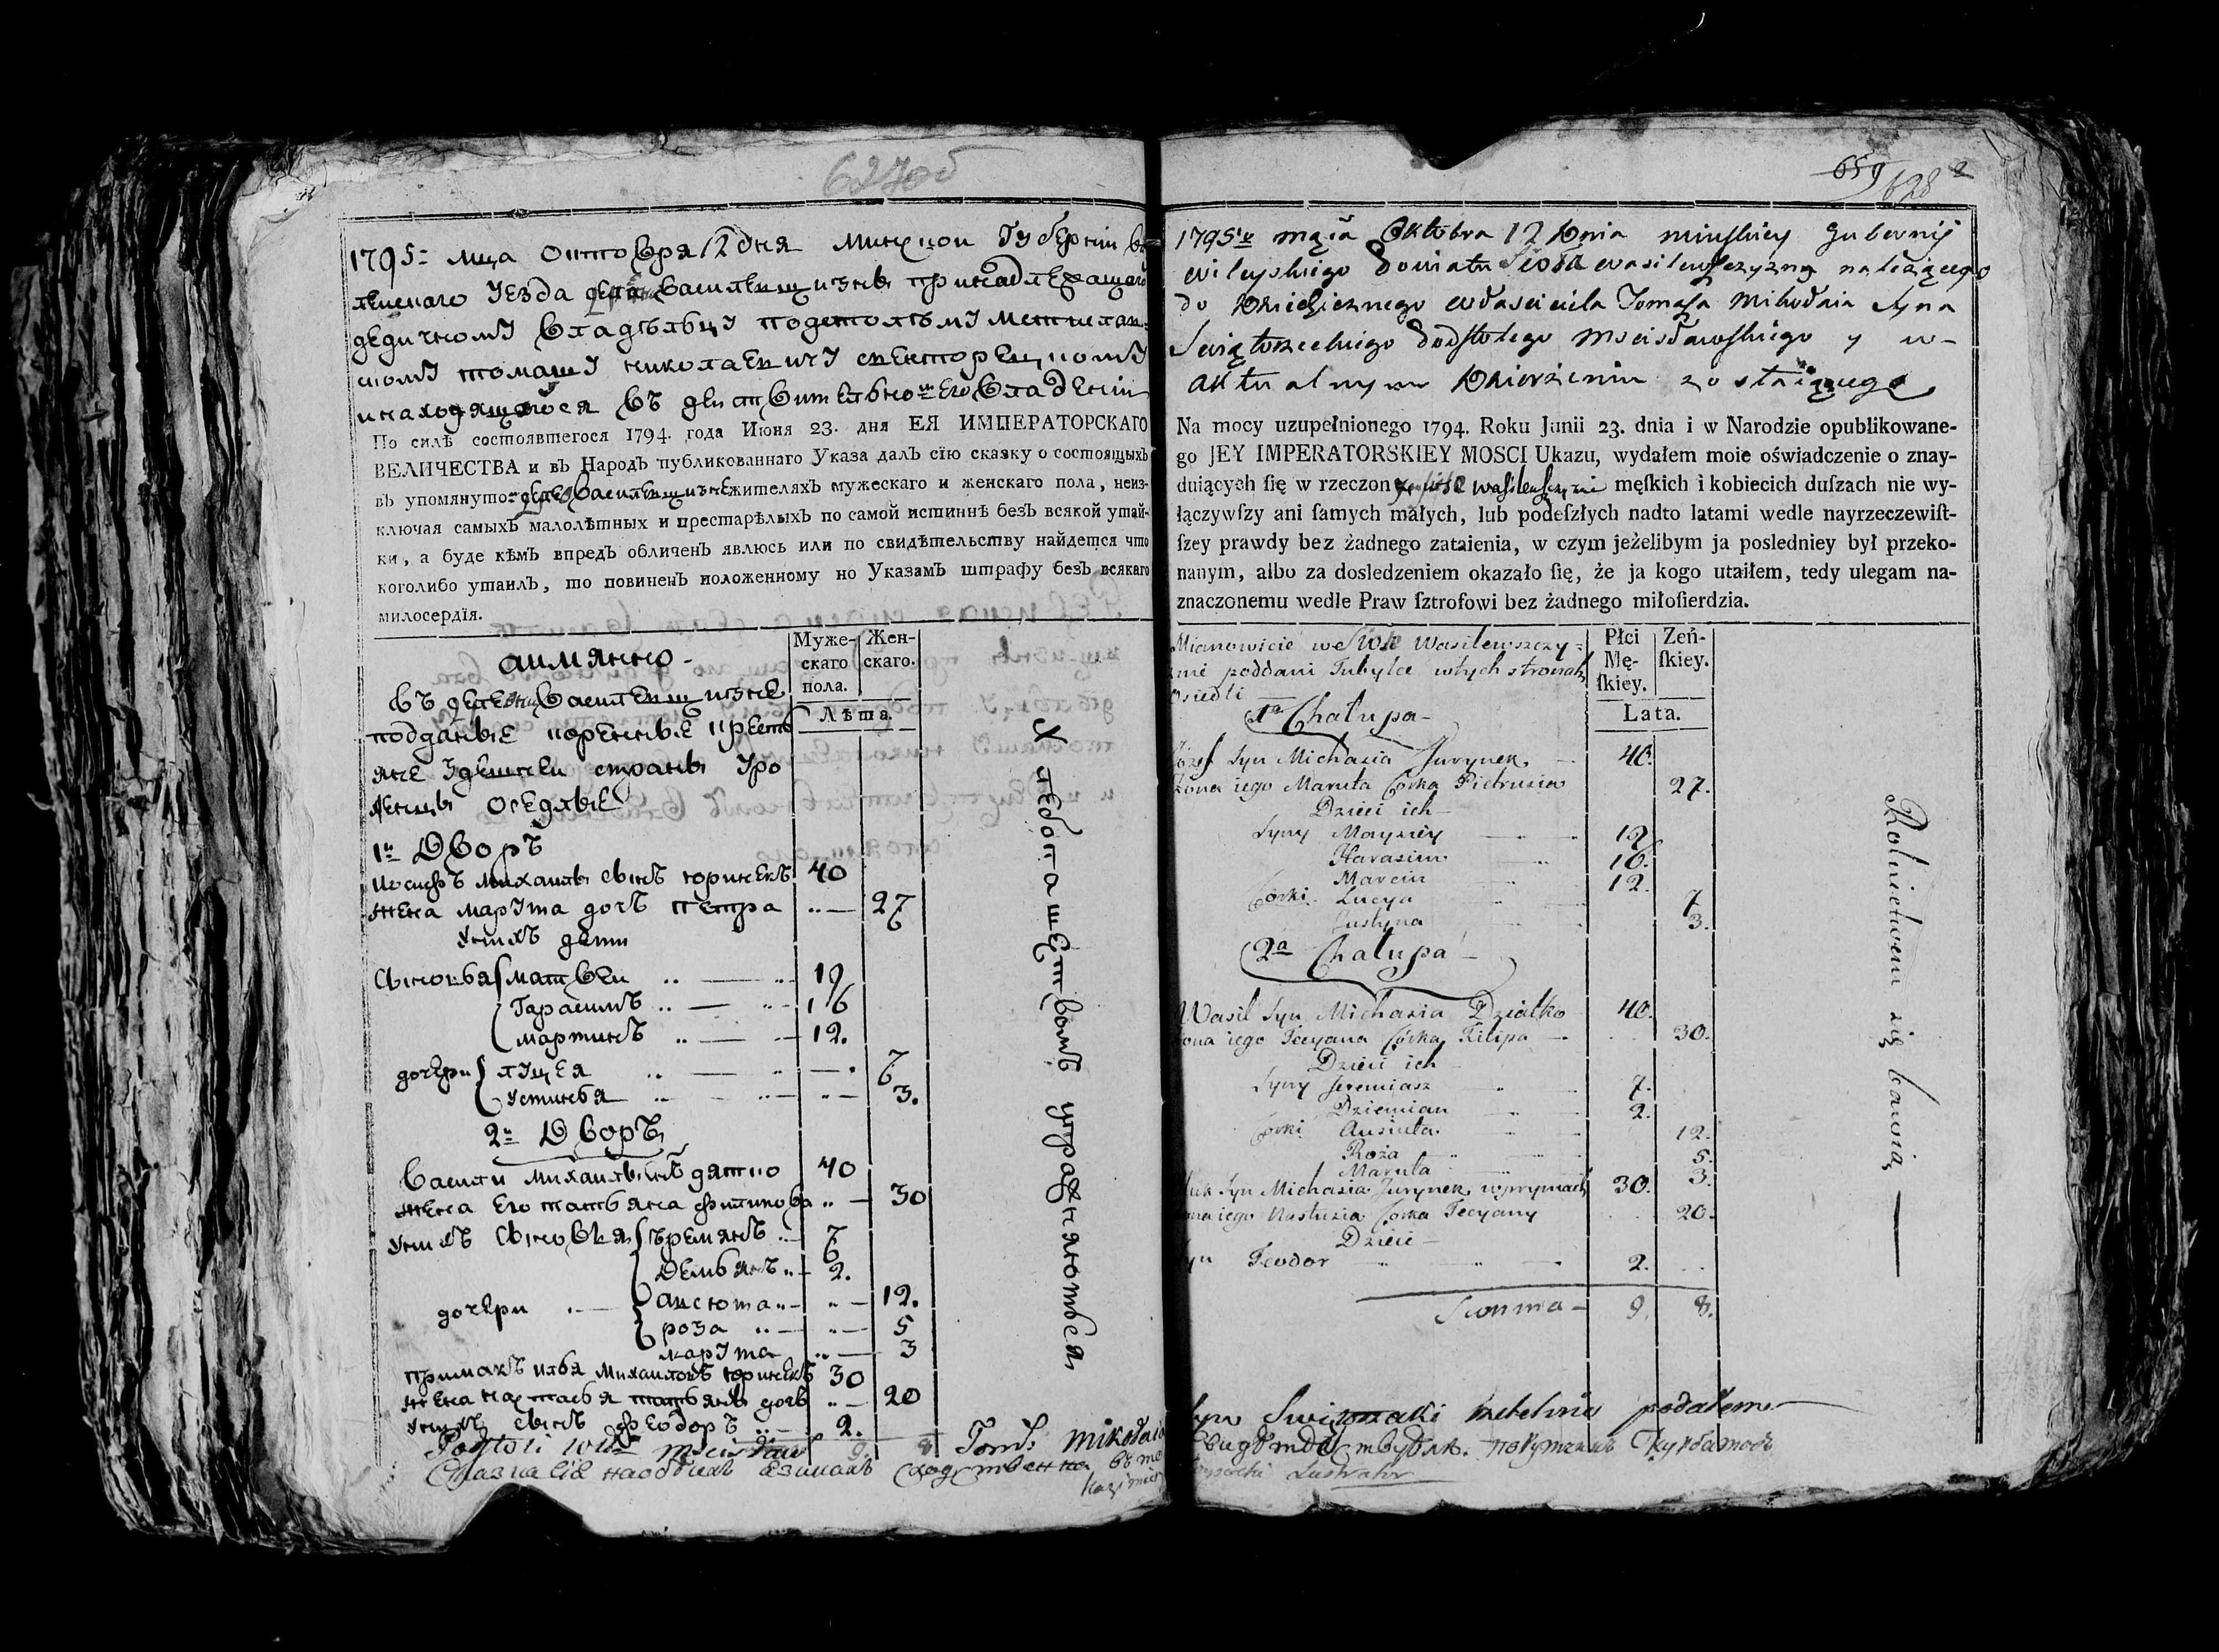 627об
1795: мца октовря 12 дня минской губернии ви
лейского уезда василевщизны принадлежащего
дедичному владельцу подстолему мстислав
скому томашу николаевичу
и находящогося въ действительном его владении
По силѣ состоявшегося 1794. года Июня 23. дня ЕЯ ИМПЕРАТОРСКАГО
ВЕЛИЧЕСТВА и въ Народъ публикованнаго Указа далъ сїю сказку о состоящыхъ
въ упомянуто василевщизне жителяхъ мужескаго и женскаго пола, неиз-
ключая самыхъ малолѣтных и престарѣлыхъ по самой истиннѣ безъ всякой утай-
ки, а буде кѣмъ впредь обличенъ явлюсь или по свидѣтельству найдется что
коголибо утаилъ, то повиненъ положенному по Указамъ штрафу безъ всякаго
милосердїя.
Муже-
скаго
пола.
Жен-
скаго.
Лѣта.
аимянно-
въ василевщизне
подданые коренные кресть
яне здешней страны уро
женцы оседлые
1й Дворъ
Иосифъ михаилы сынъ юринекъ 40
жена марута дочъ петра 27
у них дети
сыновья матвеи 19
Гарасимъ 16
мартинъ 12.
дочери луцея 7
устинья 3.
2й Дворъ
василии михаилы сынъ дятко 40
жена его татьяна филипова 30
у них сыновья еремянъ 7
Демьянъ 2.
дочери ансюта 12.
роза 5
марута 3
примакъ илья михаиловъ юринекъ 30
жена настасья татьяны дочь 20
у них сынъ феодоръ 2.
9. 8
Х лебопашествомъ упражняються
Tom: Mikołaia
659
628
1795 mąia Oktobra 12 Dnia minskiey Gubernij
wileyskiego Powiatu Sioła wasilewszczyzny należącego
do Dziedzicznego własciciela Tomasza Mikołaia syna
Swiątorzeckiego Podstolego Mscisławskiego y w-
aktualnym Dzierżeniu zostaiącego
Na mocy uzupełnionego 1794. Roku Junii 23. dnia i w Narodzie opublikowane-
go JEY IMPERATORSKIEY MOSCI Ukazu, wydałem moie oświadczenie o znay-
duiących ſię w rzeczony wasilewszczyznie męſkich i kobiecich duſzach nie wy-
łączywſzy ani ſamych małych, lub podeſzłych nadto latami wedle nayrzeczewiſt-
ſzey prawdy bez żadnego zataienia, w czym jeżelibym ja posledniey był przeko-
nanym, albo za dosledzeniem okazało ſię, że ja kogo utaiłem, tedy ulegam na-
znaczonemu wedle Praw ſztrofowi bez żadnego miłoſierdzia.
Mianowicie we Wasilewszczy=
znie poddani Tubylce w tych stronach
Osiedli
Płci
Mę-
ſkiey.
Zeń-
ſkiey.
Lata.
1a Chałupa-
Józef Syn Michasia Jurynek 40.
Żona iego Maruta Córka Pietrusia 27.
Dzieci ich
Syny Mayziey 19.
Harasim 16.
Marcin 12.
Córki Lucya 7.
Justyna 3.
2a Chałupa
Wasil Syn Michasia Dziatko 40.
Żona iego Tecyana Córka Filipa 30.
Dzieci ich
Syny Jeremiasz 7.
Dziemian 2.
Córki Ansiuta 12.
Roża 5.
Maruta 3.
Syn Michasia Jurynek w prymach 30.
Żona iego Nastazia Córka Tecyany 20.
Dzieci
Syn Teodor 2.
Summa 9. 8.
Rolnictwem się bawią
podałem
Lustrator